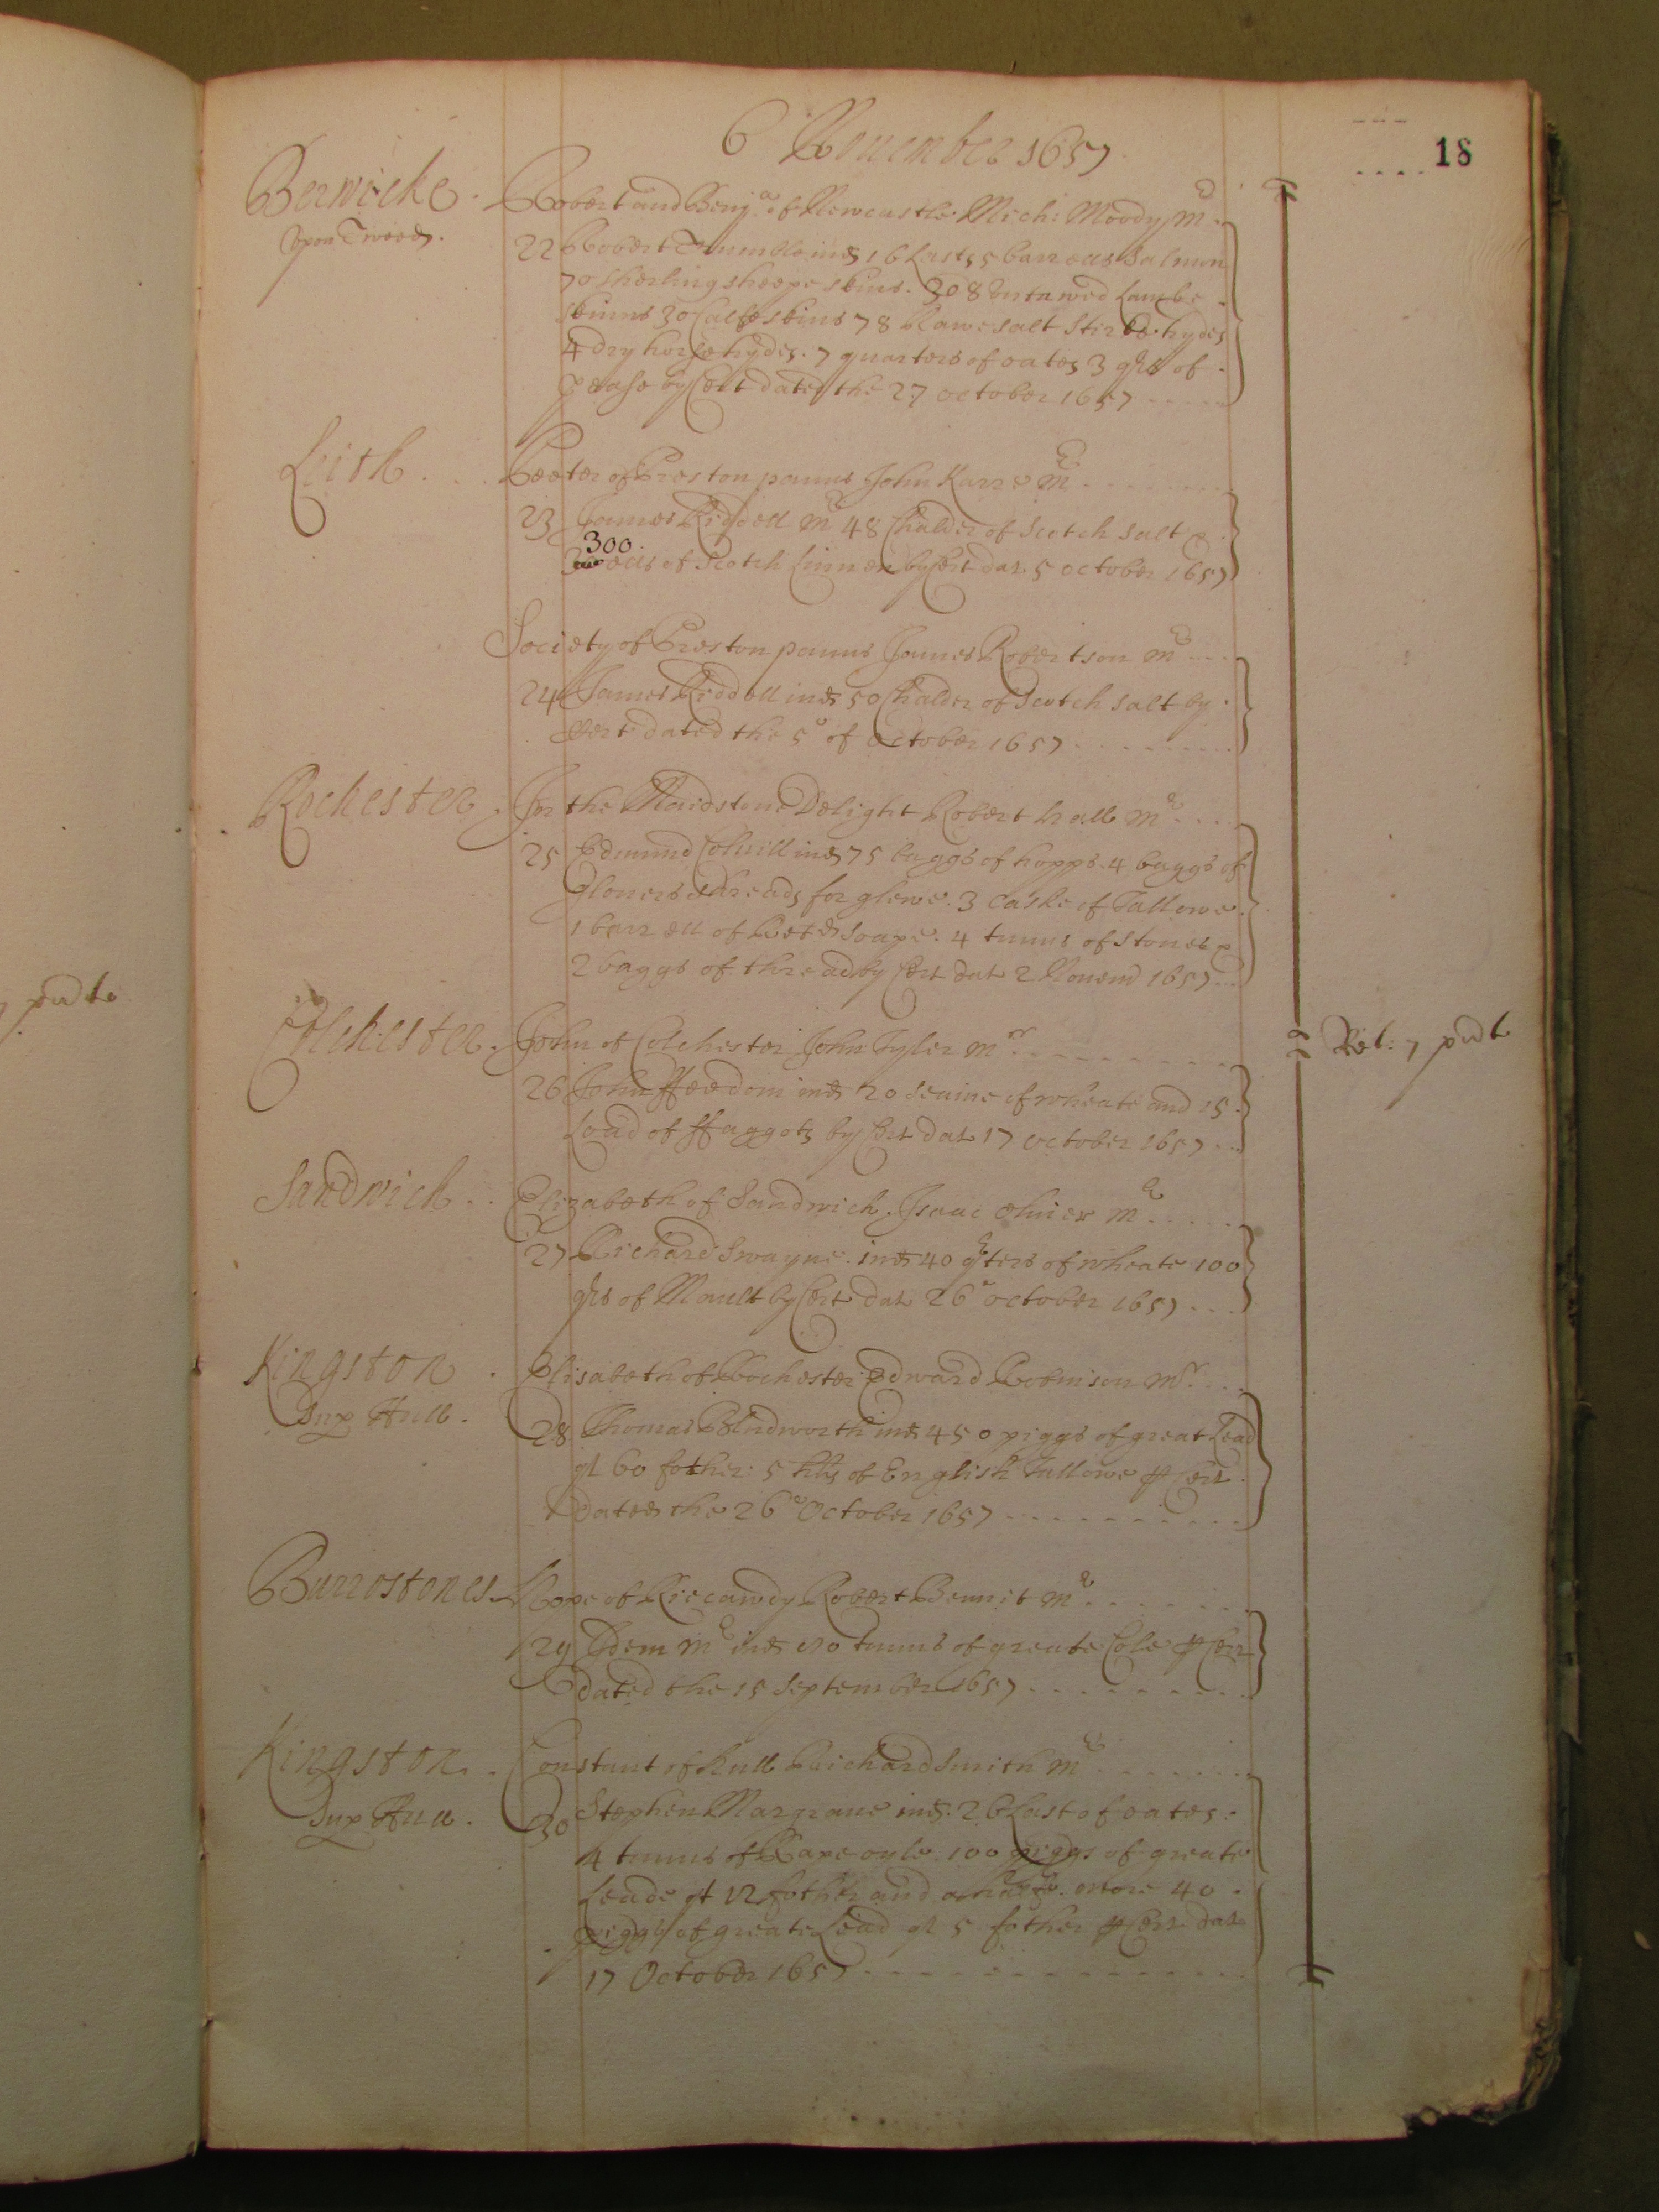 18
6 Nouember 1657
Berwicke Robert and Benj:a of Newcastle Mich: Moody Mr
Vpon Tweed. 22 Robert Trumble ind 16 Lasts 5 barrells Salmon
70 sherling sheepe skins. 308 Untawed Lambe
skinns 30 Calfe skins 78 Rawe salt Stirke hydes
4 dry horse hydes. 7 quarters of oates 3 qrs of
pease by Cert dated the 27 october 1657
Leith Peeter of Preston panns John Karre Mr
23 James Riddell Mr 48 Chalder of Scotch salt &
300
ells of Scotch Linnen by Cert dat 5 october 1657
Society of Preston panns James Robertson Mr
24 James Riddell ind 50 Chalder of Scotch salt by
Cert dated the 5o of October 1657
Rochester In the Maidstone Delight Robert hall Mr
25 Edmund Coluill ind 75 baggs of hopps. 4 baggs of
glouers shreads for glewe. 3 Caske of Tallowe
1 barrell of soape. 4 tunns of stones &
2 baggs of thread by Cert dat 2 Nouem 1657
Colchester John of Colchester John Tyler Mr
26 John ffeedom ind 20 seame of wheate and 15
Load of ffaggots by Cert dat 17 october 1657
Ret: 7 pudt
Sandwich Elizabeth of Sandwich. Isaac Mr
27 Richard Swayne. ind 40 qrters of wheate 100
qrs of Mault by Cert dat 26o october 1657
Kingston Elisabeth of Rochester Edward Robinson Mr
Sup Hull. 28 Thomas Bludworth ind 450 piggs of great Lead
qt 60 fother: 5 hhs of English Tallowe p Cert
dated the 26o October 1657
Burrostones Hope of Robert Bennit Mr
29 Idem Mr ind tunns of greate Cole p Cert
dated the 15 September 1657
Kingston Constant of Hull Richard Smith Mr
Sup Hull. 30 Stephen Margraue ind. 26 Last of oates.
4 tunns of Rape oyle 100 piggs of greate
Leade qt 12 fother and a halfe. more 40
piggs of greate Lead qt 5 fother p Cert dat
17 October 1657